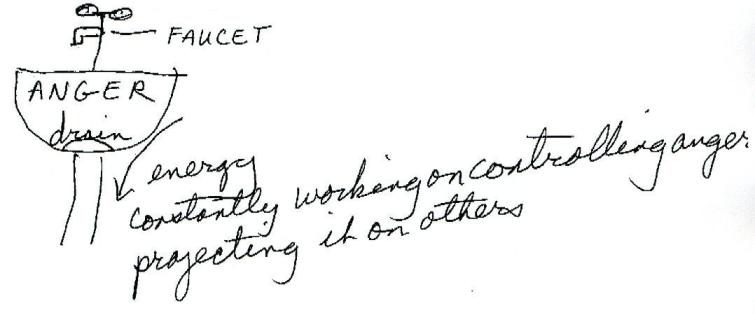 FAUCET
ANGER
drain
energy
constantly working on controlling anger
projecting it on others